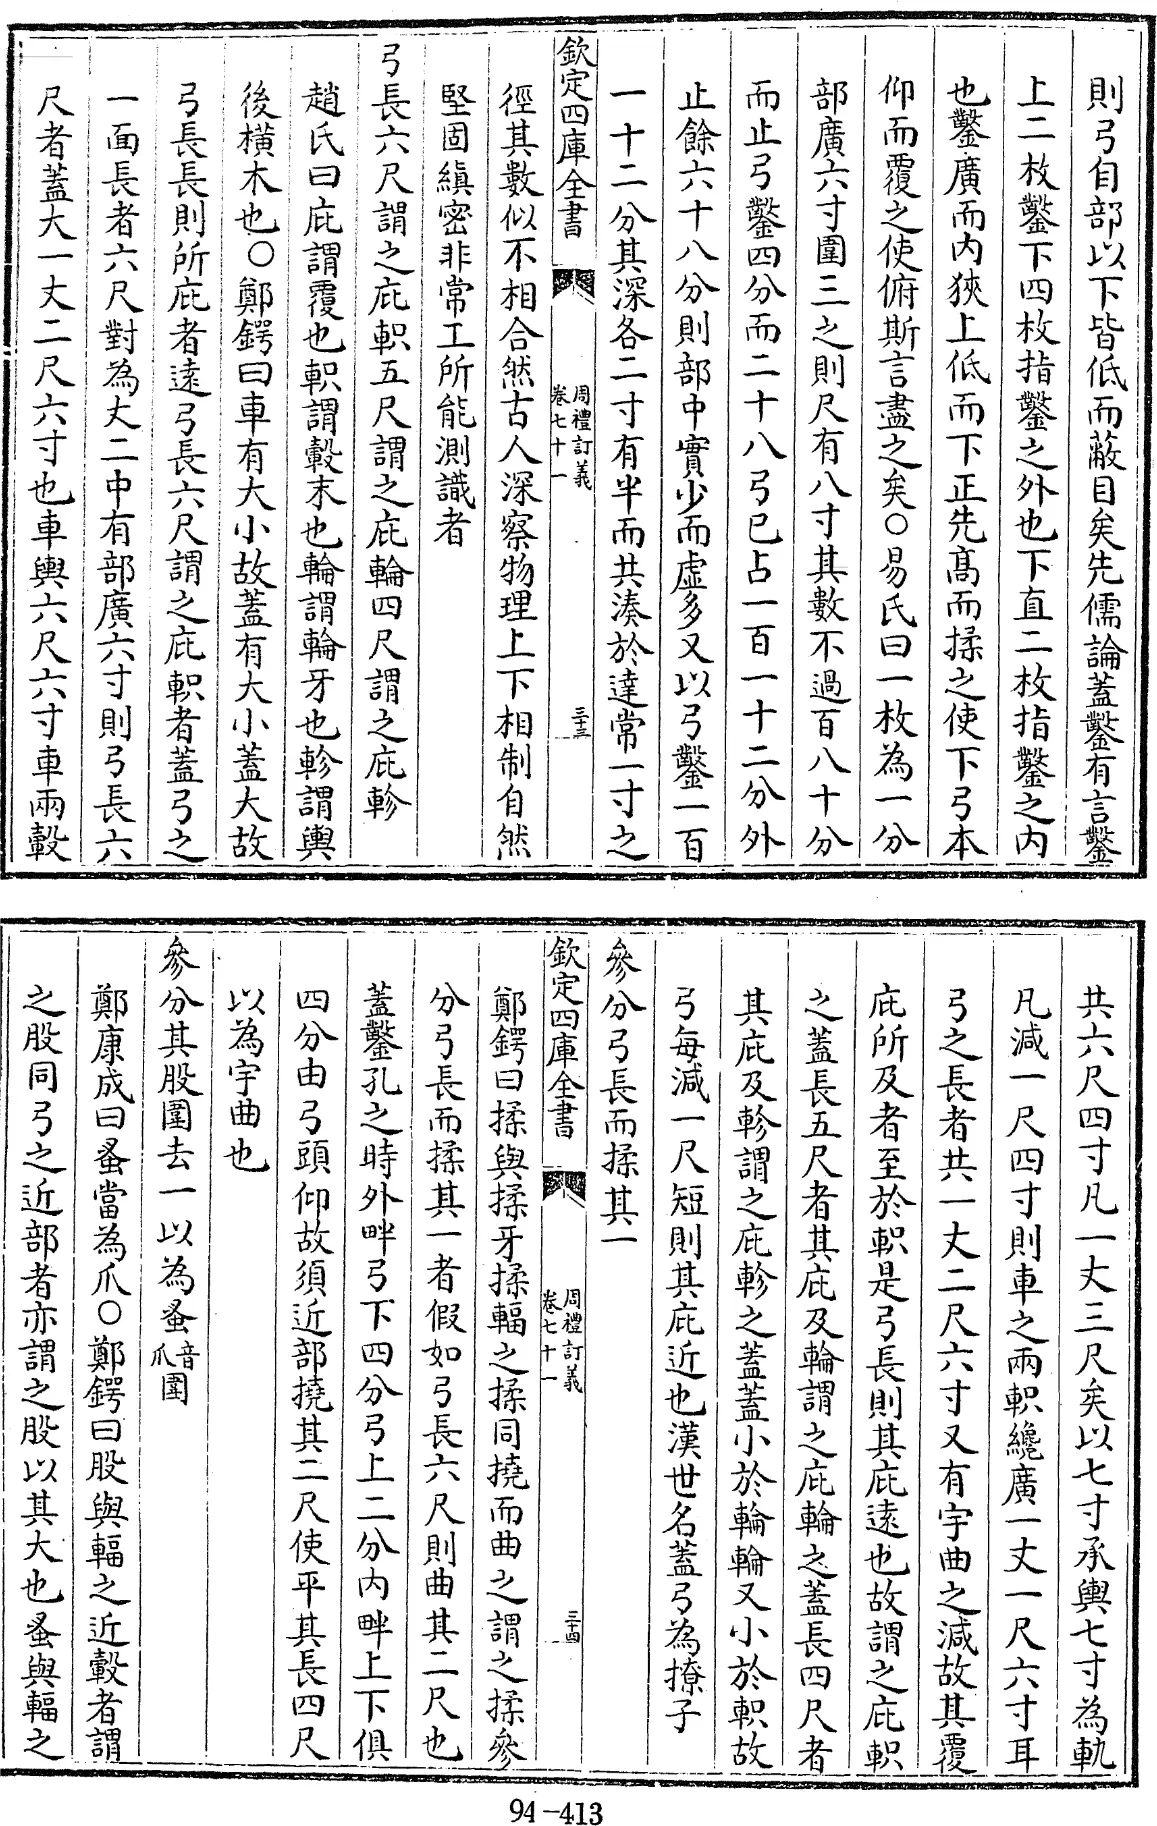 則弓自部以下皆低而蔽目矣先儒論蓋鑿有言鑿
上二枚鑿下四枚指鑿之外也下直二枚指鑿之内
也鑿廣而内狹上低而下正先髙而揉之使下弓本
仰而覆之使俯斯言盡之矣○易氏曰一枚為一分
部廣六寸圍三之則尺有八寸其數不過百八十分
而止弓鑿四分而二十八弓已占一百一十二分外
止餘六十八分則部中實少而虛多又以弓鑿一百
一十二分其深各二寸有半而共湊於達常一寸之
欽定四庫全書
周禮訂義
卷七十一
三十三
徑其數似不相合然古人深察物理上下相制自然
堅固縝密非常工所能測識者
弓長六尺謂之庇軹五尺謂之庇輪四尺謂之庇軫
趙氏曰庇謂覆也軹謂轂末也輪謂輪牙也軫謂輿
後横木也○鄭鍔曰車有大小故蓋有大小蓋大故
弓長長則所庇者遠弓長六尺謂之庇軹者蓋弓之
一面長者六尺對為丈二中有部廣六寸則弓長六
尺者蓋大一丈二尺六寸也車輿六尺六寸車兩轂
共六尺四寸凡一丈三尺矣以七寸承輿七寸為軌
凡減一尺四寸則車之兩軹纔廣一丈一尺六寸耳
弓之長者共一丈二尺六寸又有宇曲之減故其覆
庇所及者至於軹是弓長則其庇遠也故謂之庇軹
之蓋長五尺者其庇及輪謂之庇輪之蓋長四尺者
其庇及軫謂之庇軫之蓋蓋小於輪輪又小於軹故
弓每減一尺短則其庇近也漢世名蓋弓為撩子
參分弓長而揉其一
欽定四庫全書
周禮訂義
卷七十一
三十四
鄭鍔曰揉與揉牙揉輻之揉同撓而曲之謂之揉參
分弓長而揉其一者假如弓長六尺則曲其二尺也
蓋鑿孔之時外畔弓下四分弓上二分内畔上下俱
四分由弓頭仰故須近部撓其二尺使平其長四尺
以為宇曲也
參分其股圍去一以為蚤音爪圍
鄭康成曰蚤當為爪○鄭鍔曰股與輻之近轂者謂
之股同弓之近部者亦謂之股以其大也蚤與輻之
94-413